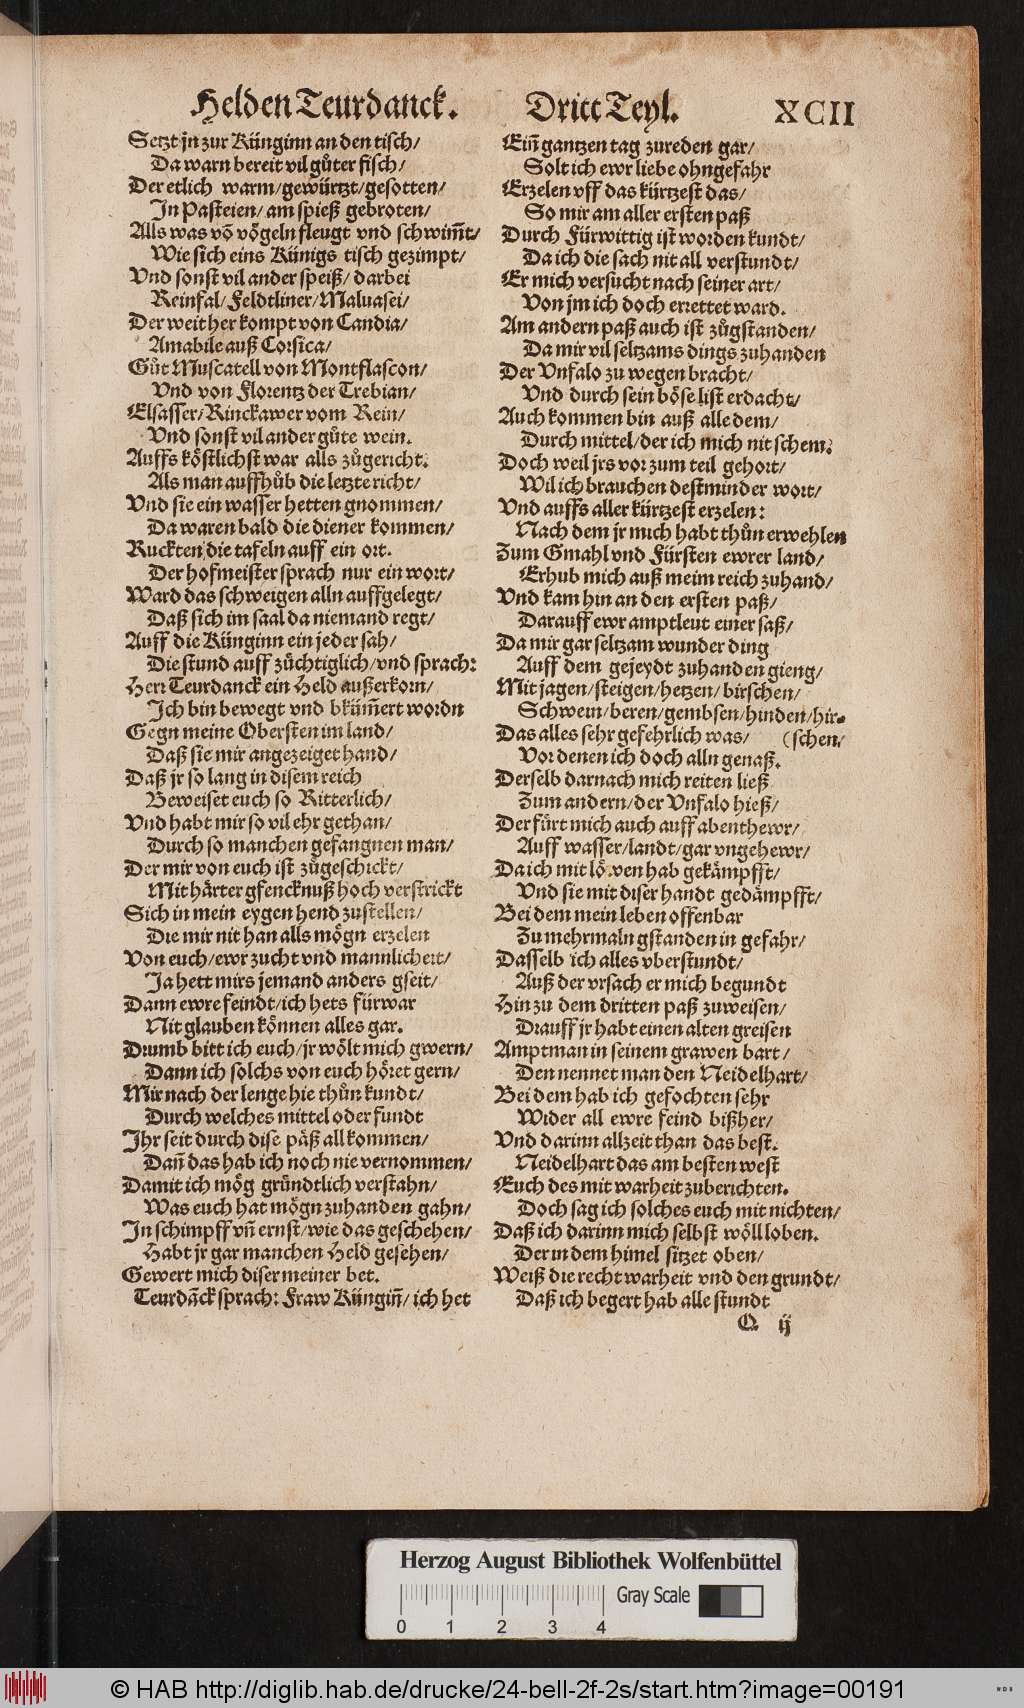 Helden Teurdanck. Dritt Teyl. XCII
Setzt jn zur Künginn an den tisch/
Da warn bereit vil gůter fisch/
Der etlich warm/gewürtzt/gesotten/
In Pasteien/ am spieß gebroten/
Alls was võ vögeln fleugt vnd schwim̃t/
Wie sich eins Künigs tisch gezimpt/
Vnd sonst vil ander speiß/ darbei
Reinfal/Feldtliner/Maluasei/
Der weit her kompt von Candia/
Amabile auß Corsica/
Gůt Muscatell von Montflascon/
Vnd von Florentz der Trebian/
Elsasser/Rinckawer vom Rein/
Vnd sonst vil ander gůte wein.
Auffs köstlichst war alls zůgericht.
Als man auffhůb die letzte richt/
Vnd sie ein wasser hetten gnommen/
Da waren bald die diener kommen/
Ruckten die tafeln auff ein ort.
Der hofmeister sprach nur ein wort/
Ward das schweigen alln auffgelegt/
Daß sich im saal da niemand regt/
Auff die Künginn ein jeder sah/
Die stund auff züchtiglich/vnd sprach:
Herr Teurdanck ein Held außerkorn/
Ich bin bewegt vnd bküm̃ert wordn
Gegn meine Obersten im land/
Daß sie mir angezeiget hand/
Daß jr so lang in disem reich
Beweiset euch so Ritterlich/
Vnd habt mir so vil ehr gethan/
Durch so manchen gefangnen man/
Der mir von euch ist zůgeschickt/
Mit härter gfencknuß hoch verstrickt
Sich in mein eygen hend zustellen/
Die mir nit han alls mögn erzelen
Von euch/ewr zucht vnd mannlicheit/
Ja hett mirs jemand anders gseit/
Dann ewre feindt/ich hets fürwar
Nit glauben können alles gar.
Drumb bitt ich euch/jr wölt mich gwern/
Dann ich solchs von euch höret gern/
Mir nach der lenge hie thůn kundt/
Durch welches mittel oder fundt
Ihr seit durch dise päß all kommen/
Dañ das hab ich noch nie vernommen/
Damit ich mög gründtlich verstahn/
Was euch hat mögn zuhanden gahn/
In schimpff vñ ernst/wie das geschehen/
Habt jr gar manchen Held gesehen/
Gewert mich diser meiner bet.
Teurdãck sprach: Fraw Küngiñ/ ich het
Eiñ gantzen tag zureden gar/
Solt ich ewr liebe ohngefahr
Erzelen vff das kürtzest das/
So mir am aller ersten paß
Durch Fürwittig ist worden kundt/
Da ich die sach nit all verstundt/
Er mich versucht nach seiner art/
Von jm ich doch errettet ward.
Am andern paß auch ist zůgstanden/
Da mir vil seltzams dings zuhanden
Der Vnfalo zu wegen bracht/
Vnd durch sein böse list erdacht/
Auch kommen bin auß alle dem/
Durch mittel/der ich mich nit schem.
Doch weil jrs vor zum teil gehort/
Wil ich brauchen destminder wort/
Vnd auffs aller kürtzest erzelen:
Nach dem jr mich habt thůn erwehlen
Zum Gmahl vnd Fürsten ewrer land/
Erhub mich auß meim reich zuhand/
Vnd kam hin an den ersten paß/
Darauff ewr amptleut einer saß/
Da mir gar seltzam wunder ding
Auff dem gejeydt zuhanden gieng/
Mit jagen/steigen/hetzen/birschen/
Schwein/beren/gembsen/hinden/hir-
Das alles sehr gefehrlich was/ (schen/
Vor denen ich doch alln genaß.
Derselb darnach mich reiten ließ
Zum andern/der Vnfalo hieß/
Der fürt mich auch auff abenthewr/
Auff wasser/landt/gar vngehewr/
Da ich mit löwen hab gekämpfft/
Vnd sie mit diser handt gedämpfft/
Bei dem mein leben offenbar
Zu mehrmaln gstanden in gefahr/
Dasselb ich alles vberstundt/
Auß der vrsach er mich begundt
Hin zu dem dritten paß zuweisen/
Drauff jr habt einen alten greisen
Amptman in seinem grawen bart/
Den nennet man den Neidelhart/
Bei dem hab ich gefochten sehr
Wider all ewre feind bißher/
Vnd darinn allzeit than das best.
Neidelhart das am besten west
Euch des mit warheit zuberichten.
Doch sag ich solches euch mit nichten/
Daß ich darinn mich selbst wöll loben.
Der in dem himel sitzet oben/
Weiß die recht warheit vnd den grundt/
Daß ich begert hab alle stundt
Q ij
Herzog August Bibliothek Wolfenbüttel
Gray Scale
0 1 2 3 4
© HAB http://diglib.hab.de/drucke/24-bell-2f-2s/start.htm?image=00191